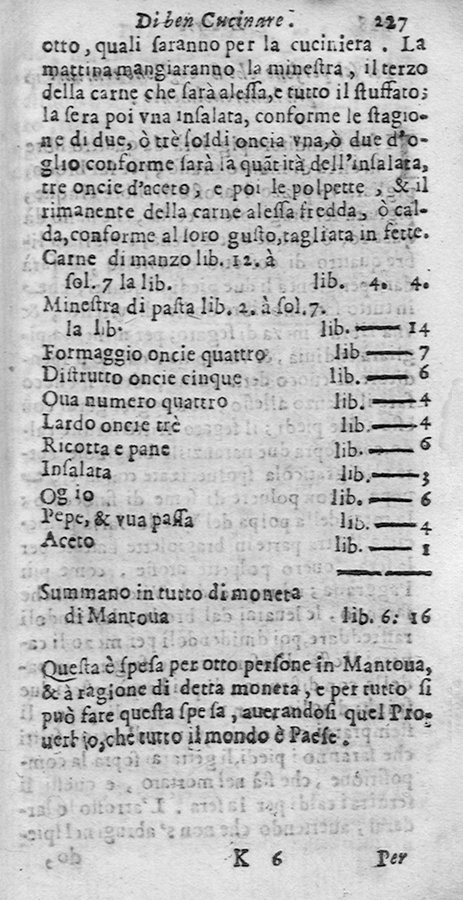 Di ben Cucinare. 227
otto, quali saranno per la cuciniera. La
mattina mangiaranno la minestra, il terzo
della carne che sarà alessa, e tutto il stuffato;
la sera poi vna insalata, conforme le stagio-
ne di due, ò trè soldi oncia vna, ò due d'o-
glio conforme sarà la quãtità dell'insalata,
tre oncie d'aceto, e poi le polpette, & il
rimanente della carne alessa fredda, ò cal-
da, conforme al loro gusto, tagliata in fette.
Carne di manzo lib. 12. à
sol. 7 la lib. lib. 4. 4.
Minestra di pasta lib. 2. à sol. 7.
la lib. lib. — 14
Formaggio oncie quattro lib — 7
Distrutto oncie cinque lib. — 6
Oua numero quattro lib. — 4
Lardo oncie trè lib. — 4
Ricotta e pane lib. — 6
Insalata lib. — 3
Og io lib. — 6
Pepe, & vua passa lib. — 4
Aceto lib. — 1
Summano in tutto di moneta
di Mantoua lib. 6. 16
Questa è spesa per otto persone in Mantoua,
& à ragione di detta moneta, e per tutto si
può fare questa spesa, auerandosi quel Pro-
uerbio, che tutto il mondo è Paese.
K 6 Per